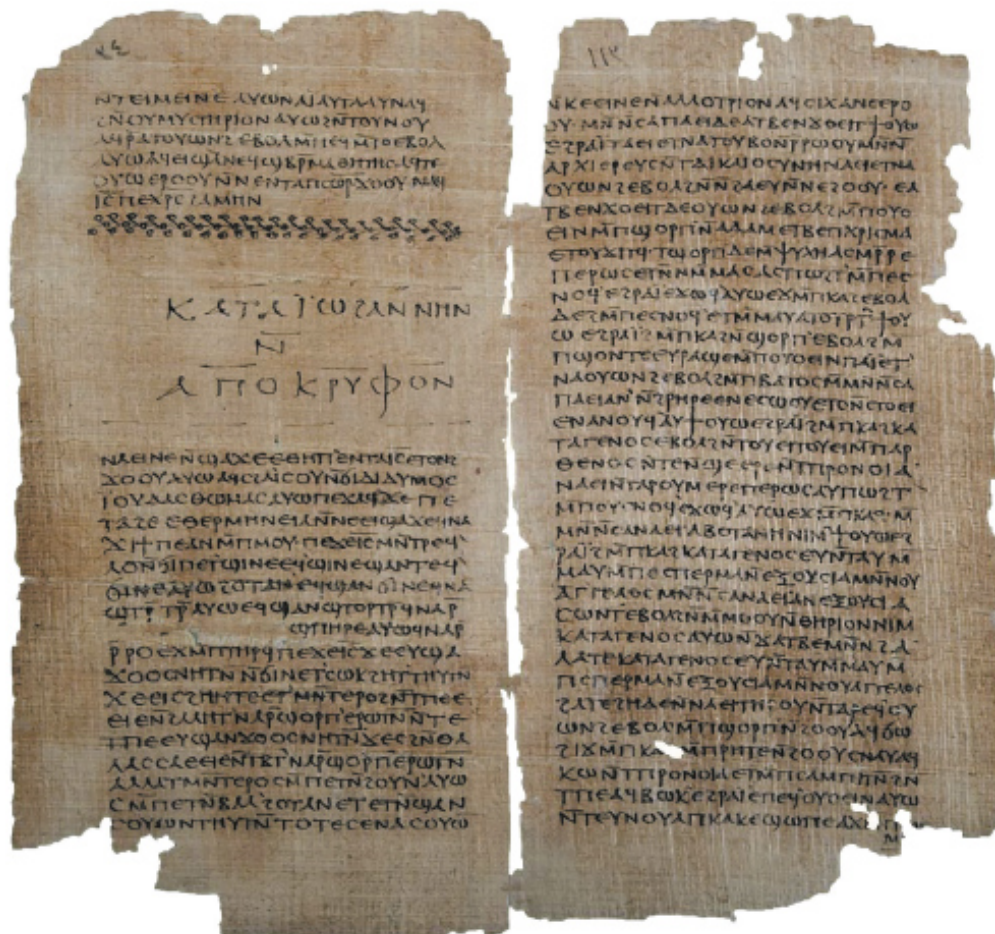 ⲛⲧⲉⲓⲙⲉⲓⲛⲉ ⲁⲩⲱ ⲛⲁⲓ ⲁⲩⲧⲁⲁⲩ ⲛⲁϥ
ϩⲛ̄ⲟⲩⲙⲩⲥⲧⲏⲣⲓⲟⲛ ⲁⲩⲱ ϩⲛ̄ⲧⲟⲩⲛⲟⲩ
ⲁϥⲣⲁⲧⲟⲩⲱⲛϩ ⲉⲃⲟⲗ ⲙ̄ⲡⲉϥⲙ̄ⲧⲟ ⲉⲃⲟⲗ
ⲁⲩⲱ ⲁϥⲉⲓ ϣⲁⲛⲉϥϣⲃⲣⲙⲁⲑⲏⲧⲏⲥ ⲁϥⲧⲉ
ⲟⲩⲱ ⲉⲣⲟⲟⲩ ⲛ̄ⲛⲉⲛⲧⲁⲡⲥⲱ̅ⲣ̅ ϫⲟⲟⲩ ⲛⲁϥ
ⲓ̅ⲥ̅ ⲡⲉⲭ̅ⲣ̅ⲥ̅ ϩⲁⲙⲏⲛ
ⲕⲁⲧⲁ ⲓⲱϩⲁⲛⲛⲏⲛ
ⲛ̄
ⲁⲡⲟⲕⲣⲩⲫⲟⲛ
ⲛⲁⲉⲓ ⲛⲉ ⲛ̄ϣⲁϫⲉ ⲉⲑⲏⲡ ⲉⲛⲧⲁⲓ̅ⲥ̅ ⲉⲧⲟⲛϩ
ϫⲟⲟⲩ ⲁⲩⲱ ⲁϥⲥϩⲁⲓⲥⲟⲩ ⲛ̄ϭⲓ ⲇⲓⲇⲩⲙⲟⲥ
ⲓⲟⲩⲇⲁⲥ ⲑⲱⲙⲁⲥ ⲁⲩⲱ ⲡⲉϫⲁϥ ϫⲉ ⲡⲉ
ⲧⲁϩⲉ ⲉⲑⲉⲣⲙⲏⲛⲉⲓⲁ ⲛ̄ⲛⲉⲉⲓϣⲁϫⲉ ϥⲛⲁ
ϫⲓϯⲡⲉ ⲁⲛ ⲙ̄ⲡⲙⲟⲩ ⲡⲉϫⲉ ⲓ̅ⲥ̅ ⲙⲛ̄ⲧⲣⲉϥ
ⲗⲟ ⲛ̄ϭⲓ ⲡⲉⲧϣⲓⲛⲉ ⲉϥϣⲓⲛⲉ ϣⲁⲛⲧⲉϥ
ϭⲓⲛⲉ ⲁⲩⲱ ϩⲟⲧⲁⲛ ⲉϥϣⲁⲛϭⲓⲛⲉ ϥⲛⲁ
ϣⲧⲣ̄ⲧⲣ̄ ⲁⲩⲱ ⲉϥϣⲁⲛϣⲧⲟⲣⲧⲣ̄ ϥⲛⲁⲣ̄
ϣⲡⲏⲣⲉ ⲁⲩⲱ ϥⲛⲁⲣ̄
ⲣ̄ⲣⲟ ⲉϫⲙ̄ ⲡⲧⲏⲣϥ ⲡⲉϫⲉ ⲓ̅ⲥ̅ ϫⲉ ⲉⲩϣⲁ
ϫⲟⲟⲥ ⲛⲏⲧⲛ̄ ⲛ̄ϭⲓ ⲛⲉⲧⲥⲱⲕ ϩⲏⲧ ⲑⲏⲩⲧⲛ̄
ϫⲉ ⲉⲓⲥϩⲏⲏⲧⲉ ⲉⲧⲙⲛ̄ⲧⲉⲣⲟ ϩⲛ̄ ⲧⲡⲉ ⲉ
ⲉⲓⲉ ⲛ̄ϩⲁⲗⲏⲧ ⲛⲁⲣ̄ ϣⲟⲣⲡ ⲉⲣⲱⲧⲛ̄ ⲛ̄ⲧⲉ
ⲧⲡⲉ ⲉⲩϣⲁⲛϫⲟⲟⲥ ⲛⲏⲧⲛ̄ ϫⲉ ⲥϩⲛ̄ ⲑⲁ
ⲗⲁⲥⲥⲁ ⲉⲉⲓⲉ ⲛ̄ⲧⲃⲧ ⲛⲁⲣ̄ ϣⲟⲣⲡ ⲉⲣⲱⲧⲛ̄
ⲁⲗⲗⲁ ⲧⲙⲛ̄ⲧⲉⲣⲟ ⲥⲙ̄ⲡⲉⲧⲛ̄ϩⲟⲩⲛ ⲁⲩⲱ
ⲥⲙ̄ⲡⲉⲧⲛ̄ⲃⲁⲗ ϩⲟⲧⲁⲛ ⲉⲧⲉⲧⲛ̄ϣⲁⲛ
ⲥⲟⲩⲱⲛ ⲑⲏⲩⲧⲛ̄ ⲧⲟⲧⲉ ⲥⲉⲛⲁⲥⲟⲩⲱ
ⲛ̄ⲕⲉⲉⲓⲛⲉ ⲛ̄ⲁⲗⲗⲟⲧⲣⲓⲟⲛ
ⲟⲩ ⲙⲛ̄ⲛ̄ⲥⲁ ⲡⲁⲉⲓ ⲇⲉ ⲁⲧⲃⲉⲛϫⲟⲉⲓⲧ ϯⲟⲩⲱ
ⲉϩⲣⲁⲓ ⲧⲁⲉⲓ ⲉⲧⲛⲁⲧⲟⲩⲃⲟ ⲛ̄ⲣ̄ⲣⲱⲟⲩ ⲙⲛ̄ⲛ̄
ⲁⲣⲭⲓⲉⲣⲉⲩⲥ ⲛ̄ⲧⲇⲓⲕⲁⲓⲟⲥⲩⲛⲏ ⲛⲁⲉⲓ ⲉⲧⲛⲁ
ⲟⲩⲱⲛϩ ⲉⲃⲟⲗ ϩⲛ̄ⲛ̄ϩⲁⲉⲩ ⲛ̄ⲛϩⲟⲟⲩ ⲉⲁ
ⲧⲃⲉⲛϫⲟⲉⲓⲧ ⲇⲉ ⲟⲩⲱⲛϩ ⲉⲃⲟⲗ ϩⲙ̄ⲡⲟⲩⲟ
ⲉⲓⲛ ⲙ̄ⲡϣⲟⲣⲡ ⲛ̄ⲁⲇⲁⲙ ⲉⲧⲃⲉ ⲡⲭⲣⲓⲥⲙⲁ
ⲧϣⲟⲣⲡ ⲇⲉ ⲙ̄ⲯⲩⲭⲏ ⲁⲥⲙⲣ̄ⲣⲉ
ⲡⲉⲣⲱⲥ ⲉⲧⲛⲙ̄ⲙⲁⲥ ⲁⲥⲡⲱϩⲧ ⲙ̄ⲡⲉⲥ
ⲥⲛⲟϥ ⲉϩⲣⲁⲓ ⲉϫⲱϥ ⲁⲩⲱ ⲉϫⲙ̄ⲡⲕⲁϩ ⲉⲃⲟⲗ
ⲇⲉ ϩⲙ̄ⲡⲉⲥⲛⲟϥ ⲉⲧⲙ̄ⲙⲁⲩ ϯⲟⲩ
ⲱ ⲉϩⲣⲁⲓ ϩⲓϫⲙ̄ⲡⲕⲁϩ ⲛ̄ϣⲟⲣⲡ ⲉⲃⲟⲗ ϩⲙ̄
ⲡϣⲟⲛⲧⲉ ⲉⲩⲣⲁϣⲉ ⲙ̄ⲡⲟⲩⲟⲉⲓⲛ ⲡⲁⲓ ⲉⲧ
ⲛⲁⲟⲩⲱⲛϩ ⲉⲃⲟⲗ ϩⲙ̄ⲡⲃⲁⲧⲟⲥ ⲙ̄ⲙⲛ̄ⲛ̄ⲥⲁ
ⲡⲁⲉⲓ ⲁⲛ̄ϩⲣⲏⲣⲉ ⲉⲛⲉⲥⲱⲟⲩ ⲉⲧⲟ ⲛ̄ⲥⲧⲟⲉⲓ
ⲉⲛⲁⲛⲟⲩϥ ⲁⲩϯⲟⲩⲱ ⲉϩⲣⲁⲓ ϩⲙ̄ⲡⲕⲁϩ ⲕⲁ
ⲧⲁⲅⲉⲛⲟⲥ ⲉⲃⲟⲗ ϩⲛ̄ⲧⲟⲩⲉⲓ ⲧⲟⲩⲉⲓ ⲙ̄ⲡⲁⲣ
ⲑⲉⲛⲟⲥ ⲛ̄ⲧⲉ ⲛ̄ϣⲉⲉⲣⲉ ⲛ̄ⲧⲡⲣⲟⲛⲟⲓⲁ
ⲛⲁⲉⲓ ⲛ̄ⲧⲁⲣⲟⲩⲙⲉⲣⲉ ⲡⲉⲣⲱⲥ ⲁⲩⲡⲱϩⲧ
ⲙ̄ⲡⲟⲩⲥⲛⲟϥ ⲉϫⲱϥ ⲁⲩⲱ ⲉϫⲙ̄ⲡⲕⲁϩ ⲙ̄
ⲙⲛ̄ⲛ̄ⲥⲁ ⲛⲁⲉⲓ ⲁⲃⲟⲧⲁⲛⲏ ⲛⲓⲙ ϯⲟⲩⲱ ⲉϩ
ⲣⲁⲓ ϩⲙ̄ⲡⲕⲁϩ ⲕⲁⲧⲁⲅⲉⲛⲟⲥ ⲉⲩⲛ̄ⲧⲁⲩ ⲙ̄
ⲙⲁⲩ ⲙ̄ⲡⲉⲥⲡⲉⲣⲙⲁ ⲛ̄ⲉⲝⲟⲩⲥⲓⲁ ⲙⲛ̄ⲛⲟⲩ
ⲁⲅⲅⲉⲗⲟⲥ ⲙⲛ̄ⲛ̄ⲥⲁ ⲛⲁⲉⲓ ⲁⲛⲉⲝⲟⲩⲥⲓⲁ
ⲥⲱⲛⲧ ⲉⲃⲟⲗ ϩⲛ̄ⲙ̄ⲙⲟⲟⲩ ⲛ̄ⲑⲏⲣⲓⲟⲛ ⲛⲓⲙ
ⲕⲁⲧⲁⲅⲉⲛⲟⲥ ⲁⲩⲱ ⲛ̄ϫⲁⲧⲃⲉ ⲙⲛ̄ⲛ̄ϩⲁ
ⲗⲁⲧⲉ ⲕⲁⲧⲁⲅⲉⲛⲟⲥ ⲉⲩⲛ̄ⲧⲁⲩ ⲙ̄ⲙⲁⲩ ⲙ̄
ⲡⲥⲡⲉⲣⲙⲁ ⲛ̄ⲉⲝⲟⲩⲥⲓⲁ ⲙⲛ̄ⲛⲟⲩⲁⲅⲅⲉⲗⲟⲥ
ϩⲁⲧⲉϩⲏ ⲇⲉ ⲛ̄ⲛⲁⲉⲓ ⲧⲏⲣⲟⲩ ⲛ̄ⲧⲁⲣⲉϥⲟⲩ
ⲱⲛϩ ⲉⲃⲟⲗ ϩⲙ̄ⲡϣⲟⲣⲡ ⲛ̄ϩⲟⲟⲩ ⲁϥϭⲱ
ϩⲓϫⲙ̄ⲡⲕⲁϩ ⲙ̄ⲡⲣⲏⲧⲉ ⲛ̄ϩⲟⲟⲩ ⲥⲛⲁⲩ ⲁϥ
ⲕⲱ ⲛ̄ⲧⲡⲣⲟⲛⲟⲓⲁ ⲉⲧⲙ̄ⲡⲥⲁⲙⲡⲓⲧⲛ̄ ϩⲛ̄
ⲧⲡⲉ ⲁϥⲃⲱⲕ ⲉϩⲣⲁⲓ ⲉⲡⲉϥⲟⲩⲟⲉⲓⲛ ⲁⲩⲱ
ⲛ̄ⲧⲉⲩⲛⲟⲩ ⲁⲡⲕⲁⲕⲉ ϣⲱⲡⲉ